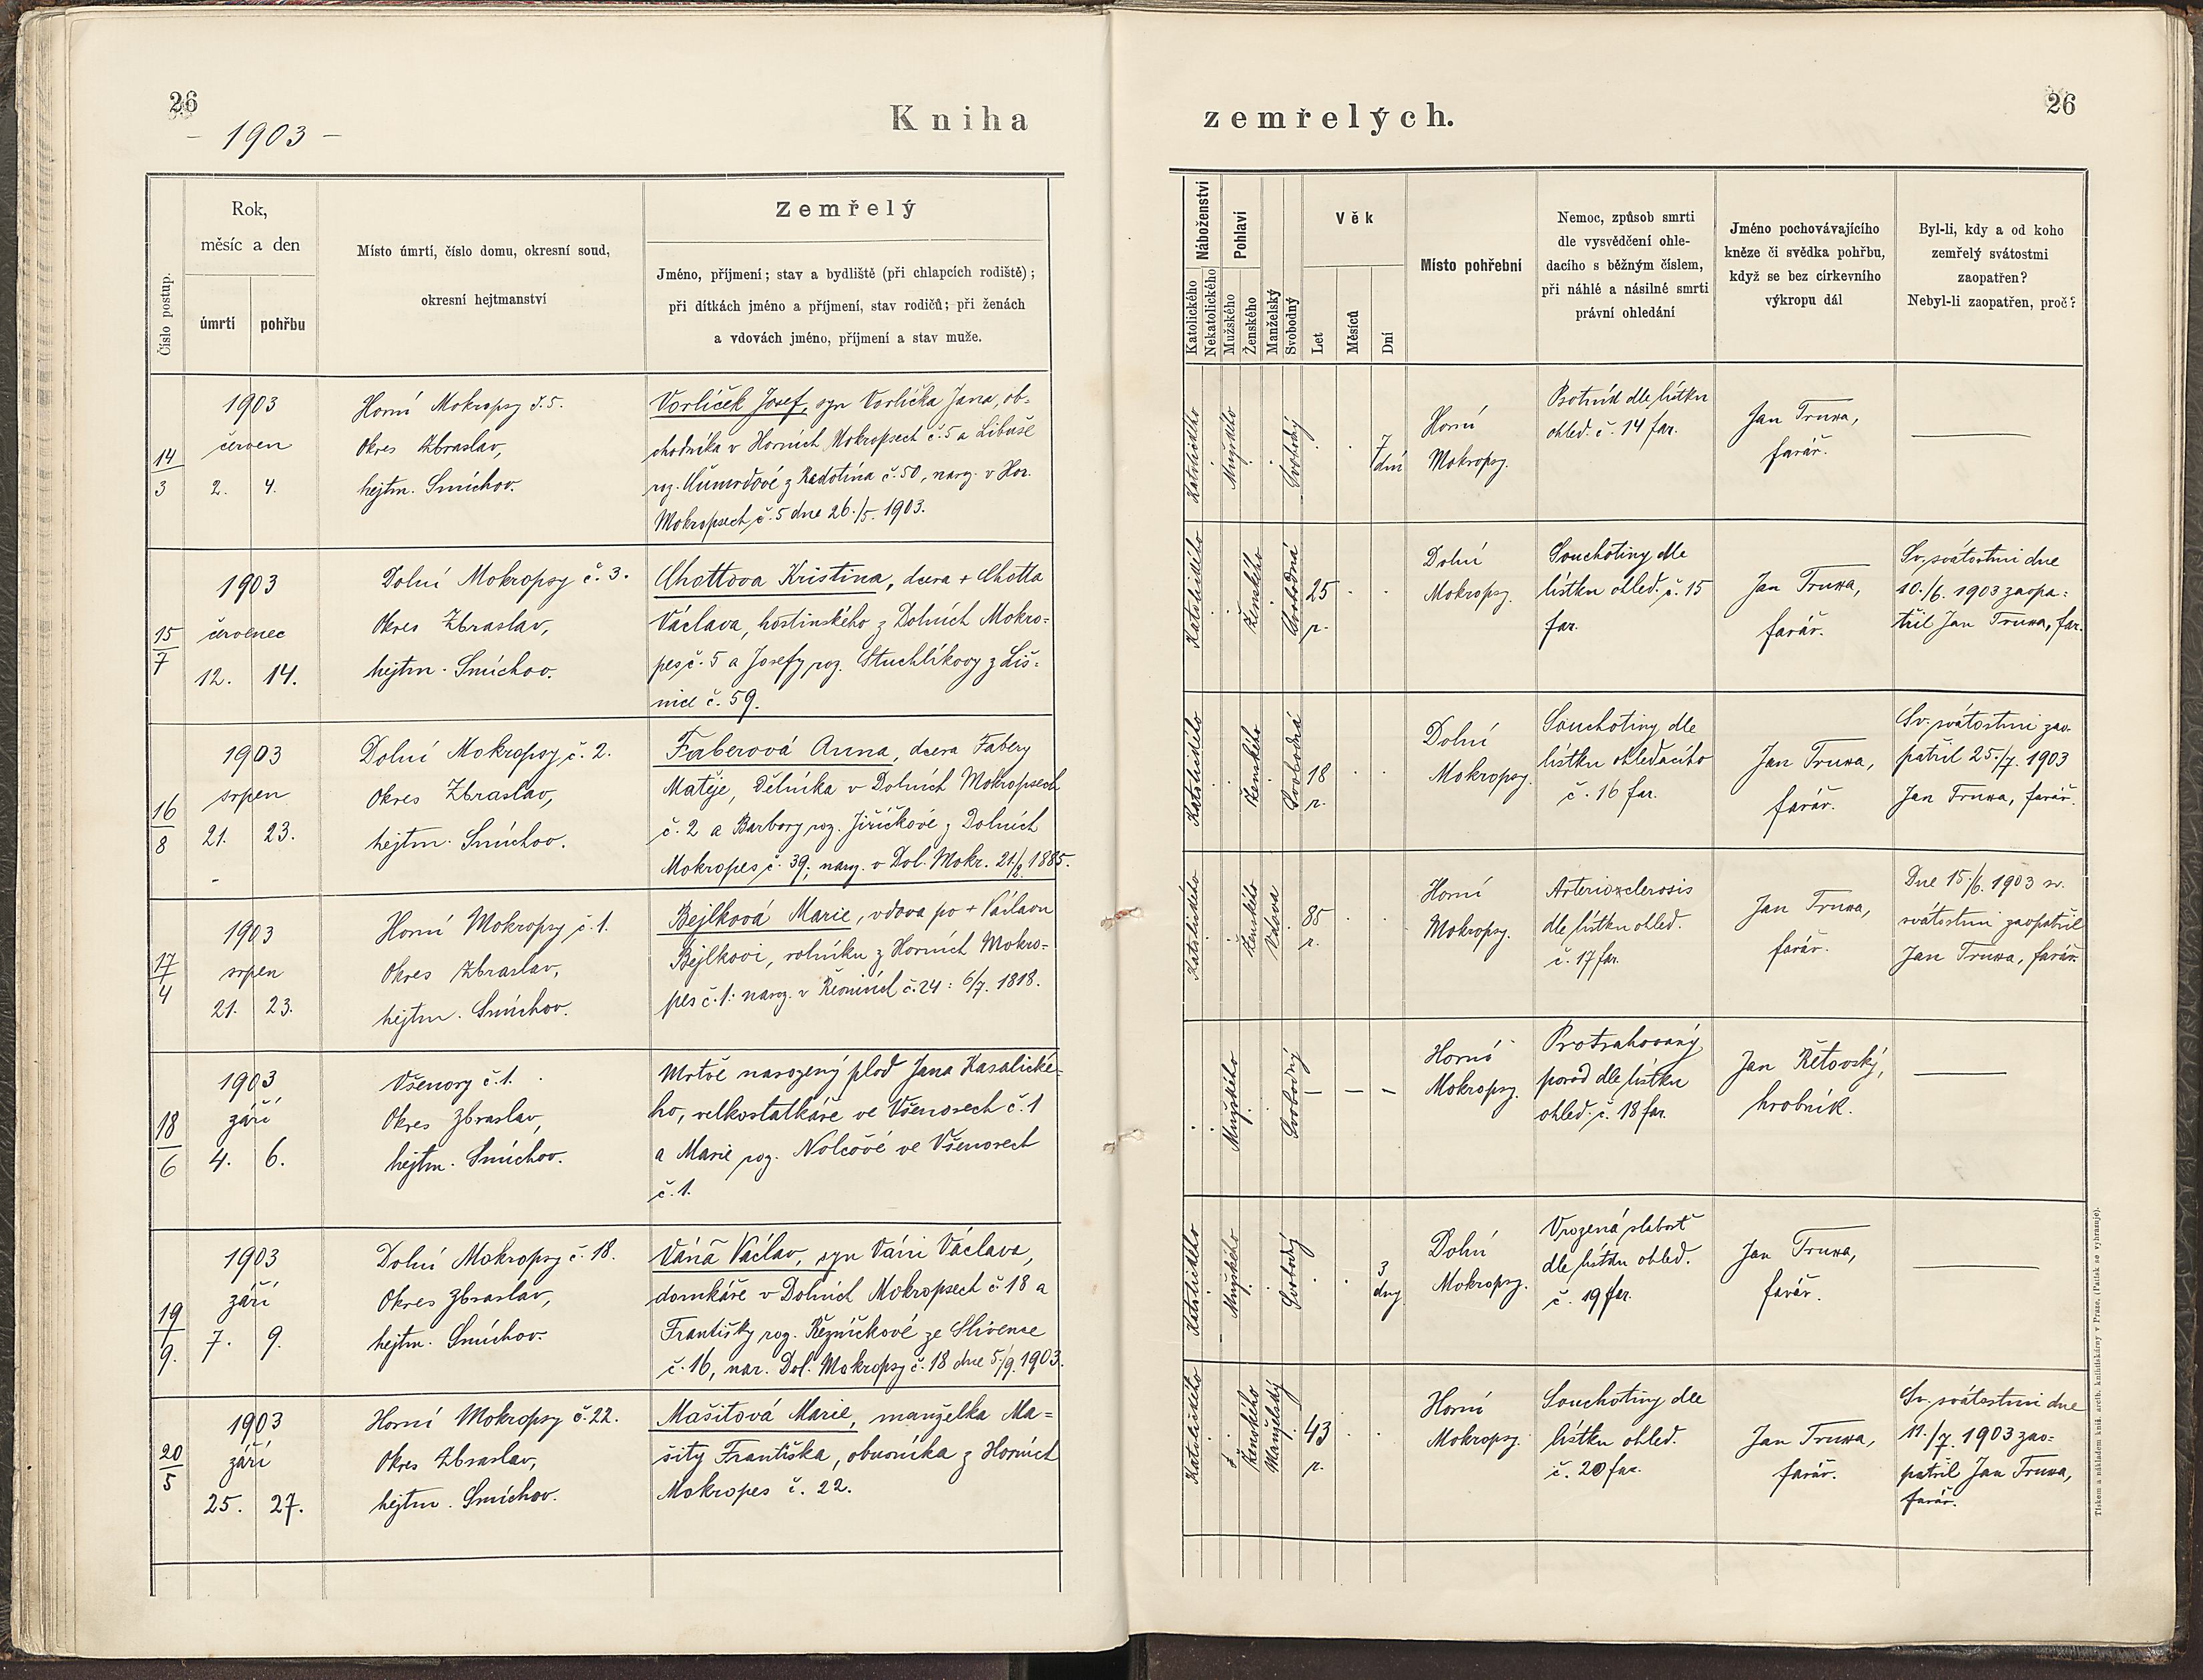 26
- 1903 -
Kniha
zemřelých.
26
Číslo postup.
Rok,
měsíc a den
úmrtí
pohřbu
Místo úmrtí, číslo domu, okresní soud,
okresní hejtmanství
Zemřelý
Jméno, příjmení; stav a bydliště (při chlapcích rodiště);
při dítkách jméno a příjmení, stav rodičů; při ženách
a vdovách jméno, příjmení a stav muže.
Náboženství
Katolického
Nekatolického
Pohlaví
Mužského
Ženského
Manželský
Svobodný
Věk
Let
Měsíců
Dní
Místo pohřební
Nemoc, způsob smrti
dle vysvědčení ohle-
dacího s běžným číslem,
při náhlé a násilné smrti
právní ohledání
Jméno pochovávajícího
kněze či svědka pohřbu,
když se bez církevního
výkropu dál
Byl-li, kdy a od koho
zemřelý svátostmi
zaopatřen?
Nebyl-li zaopatřen, proč?
14
3
1903
červen
2. 4.
Horní Mokropsy č. 5.
Okres Zbraslav,
hejtm. Smíchov.
Vorlíček Josef, syn Vorlíčka Jana, ob-
chodníka v Horních Mokropsech č. 5 a Libuše
roz. z Radotína č. 50, naroz. v Hor.
Mokropsech č. 5 dne 26./5. 1903.
Katolického
Mužského
Svobodný
7
dní
Horní
Mokropsy.
Psotník dle lístku
ohled. č. 14 far.
Jan Truxa,
farář.
15
7
1903
červenec
12. 14.
Dolní Mokropsy č. 3.
Okres Zbraslav,
hejtm. Smíchov.
Chottova Kristina, dcera + Chotta
Václava, hostinského z Dolních Mokro-
pes č. 5 a Josefy roz. Stuchlíkovy z Liš-
nice č. 59.
Katolického
Ženského
Svobodná
25
r.
Dolní
Mokropsy.
Souchotiny dle
lístku ohled. č. 15
far.
Jan Truxa,
farář.
Sv. svátostmi dne
10./6. 1903 zaopa-
třil Jan Truxa, far.
16
8
1903
srpen
21. 23.
Dolní Mokropsy č. 2.
Okres Zbraslav,
hejtm. Smíchov.
Faberová Anna, dcera Fabery
Matěje, dělníka v Dolních Mokropsech
č. 2 a Barbory roz. Jiříčkové z Dolních
Mokropes č. 39; naroz. v Dol. Mokr. 21/8 1885.
Katolického
Ženského
Svobodná
18
r.
Dolní
Mokropsy.
Souchotiny dle
lístku ohledacího
č. 16 far.
Jan Truxa,
farář.
Sv. svátostmi zao-
patřil 25./7. 1903
Jan Truxa, farář.
17
4
1903
srpen
21. 23.
Horní Mokropsy č. 1.
Okres Zbraslav,
hejtm. Smíchov.
Bejlková Marie, vdova po + Václavu
Bejlkovi, rolníku z Horních Mokro-
pes č. 1: naroz. v č. 24: 6/7. 1818.
Katolického
Ženského
Vdova
85
r.
Horní
Mokropsy.
Arteriosclerosis
dle lístku ohled.
č. 17 far.
Jan Truxa,
farář.
Dne 15./6. 1903 sv.
svátostmi zaopatřil
Jan Truxa, farář.
18
6
1903
září
4. 6.
Všenory č. 1.
Okres Zbraslav,
hejtm. Smíchov.
Mrtvě narozený plod Jana Kasalické-
ho, velkostatkáře ve Všenorech č. 1
a Marie roz. Nolčové ve Všenorech
č. 1.
Mužského
Svobodný
— — —
Horní
Mokropsy.
Protrahovaný
porod dle lístku
ohled. č. 18 far.
Jan Řetovský,
hrobník.
19
9.
1903
září
7. 9.
Dolní Mokropsy č. 18.
Okres Zbraslav,
hejtm. Smíchov.
Váňa Václav, syn Váni Václava,
domkáře v Dolních Mokropsech č. 18 a
Františky roz. Řezníčkové ze Slivence
č. 16, nar. Dol. Mokropsy č. 18 dne 5/9. 1903.
Katolického
Mužského
Svobodný
3
dny
Dolní
Mokropsy.
Vrozená slabost
dle lístku ohled.
č. 19 far.
Jan Truxa,
farář.
20
5
1903
září
25. 27.
Horní Mokropsy č. 22.
Okres Zbraslav,
hejtm. Smíchov.
Mašitová Marie, manželka Ma-
šity Františka, obuvníka z Horních
Mokropes č. 22.
Katolického
Ženského
Manželský
43
r.
Horní
Mokropsy.
Souchotiny dle
lístku ohled.
č. 20 far.
Jan Truxa,
farář.
Sv. svátostmi dne
11./7. 1903 zao-
patřil Jan Truxa,
farář.
Tiskem a nákladem kníž. arcib. knihtiskárny v Praze. (Patisk se vyhrazuje).